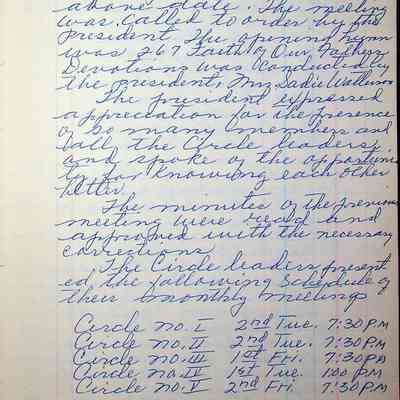 above date. The meeting
was called to order by the
President. The opening hymn
was 267 Faith of Our Fathers
Devotions was conducted by
the president, Mrs. Sadie
The president expressed
appreciation for the presence
of so many members and
all the Circle leaders,
and spoke of the opportuni
ty for knowing each other
better.
The minutes of the previous
meeting were read and
approved with the necessary
corrections.
The Circle leaders present
ed the following Schedule of
their monthly meetings
Circle No. I 2nd Tue. 7:30 P.M
Circle No. II 2nd Tue. 7:30 P.M
Circle No. III 1st Fri. 7:30 P.M
Circle No. IV 1st Tue. 1:00 P.M
Circle No. V 2nd Fri. 7:30 P.M